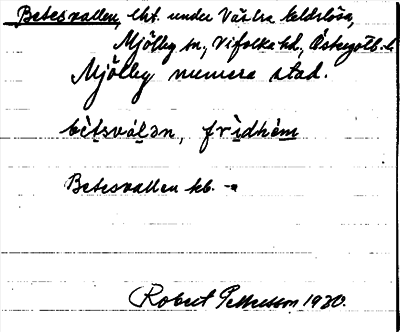 Betesvallen, lht. under Västra Eldslösa,
Mjölby sn., Vifolka hd., Östergötl. l.
Mjölby numera stad.
bètsvál̠ən, frìdhèm
Betesvallen kb. -a
Robert Pettersson 1920.